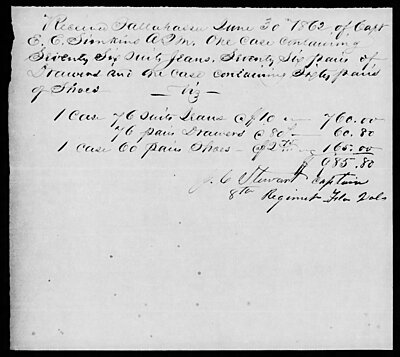 Received Tallahassee June 30th 1862 of Capt
E. C. Simkins A.Q.M. One Case Containing
Seventy Six Suits Jeans, Seventy Six pairs of
Drawers and one case containing Sixty pairs
of Shoes — viz —
1 Case 76 Suits Jeans @ $10 — 760.00
76 pairs Drawers @ 80¢ — 60.80
1 case 60 pairs Shoes — @ 2.75 — 165.00
$ 985.80
Stewart Captain
8th Regiment Fla Vols